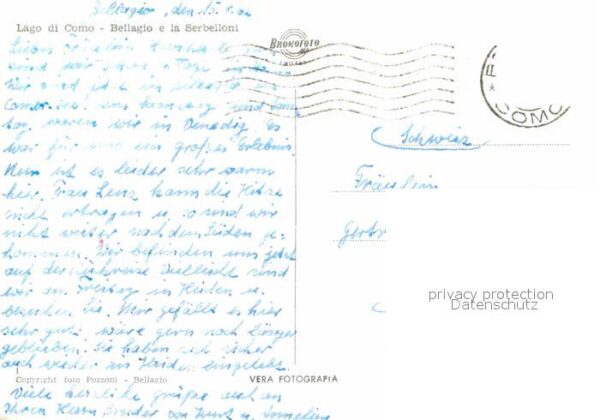 Bellagio, den 15.
Lago di Como - Bellagio e la Serbelloni
BROMOFOTO
Liebes Fräulein
sind wir schon Tage in
wir sind jetzt in Bellagio am
Comer-See. und Sonn-
tag waren wir in Venedig. Es
war für uns ein großes Erlebnis.
Nun ist es leider sehr warm
hier. Frau Lenz kann die Hitze
nicht ertragen u. so sind wir
nicht weiter nach dem Süden ge-
kommen. Wir befinden uns jetzt
auf der Rückreise. Vielleicht sind
wir am Freitag in Heiden u.
besuchen Sie. Mir gefällt es hier
sehr gut. wäre gern noch länger
geblieben. Sie haben sich sicher
auch wieder in Heiden eingelebt.
Viele herzliche Grüße auch an
Ihren Herrn Bruder von
COMO
Schweiz
Fräulein
Gertr
privacy protection
Datenschutz
Copyright foto Pozzoni - Bellagio
VERA FOTOGRAFIA